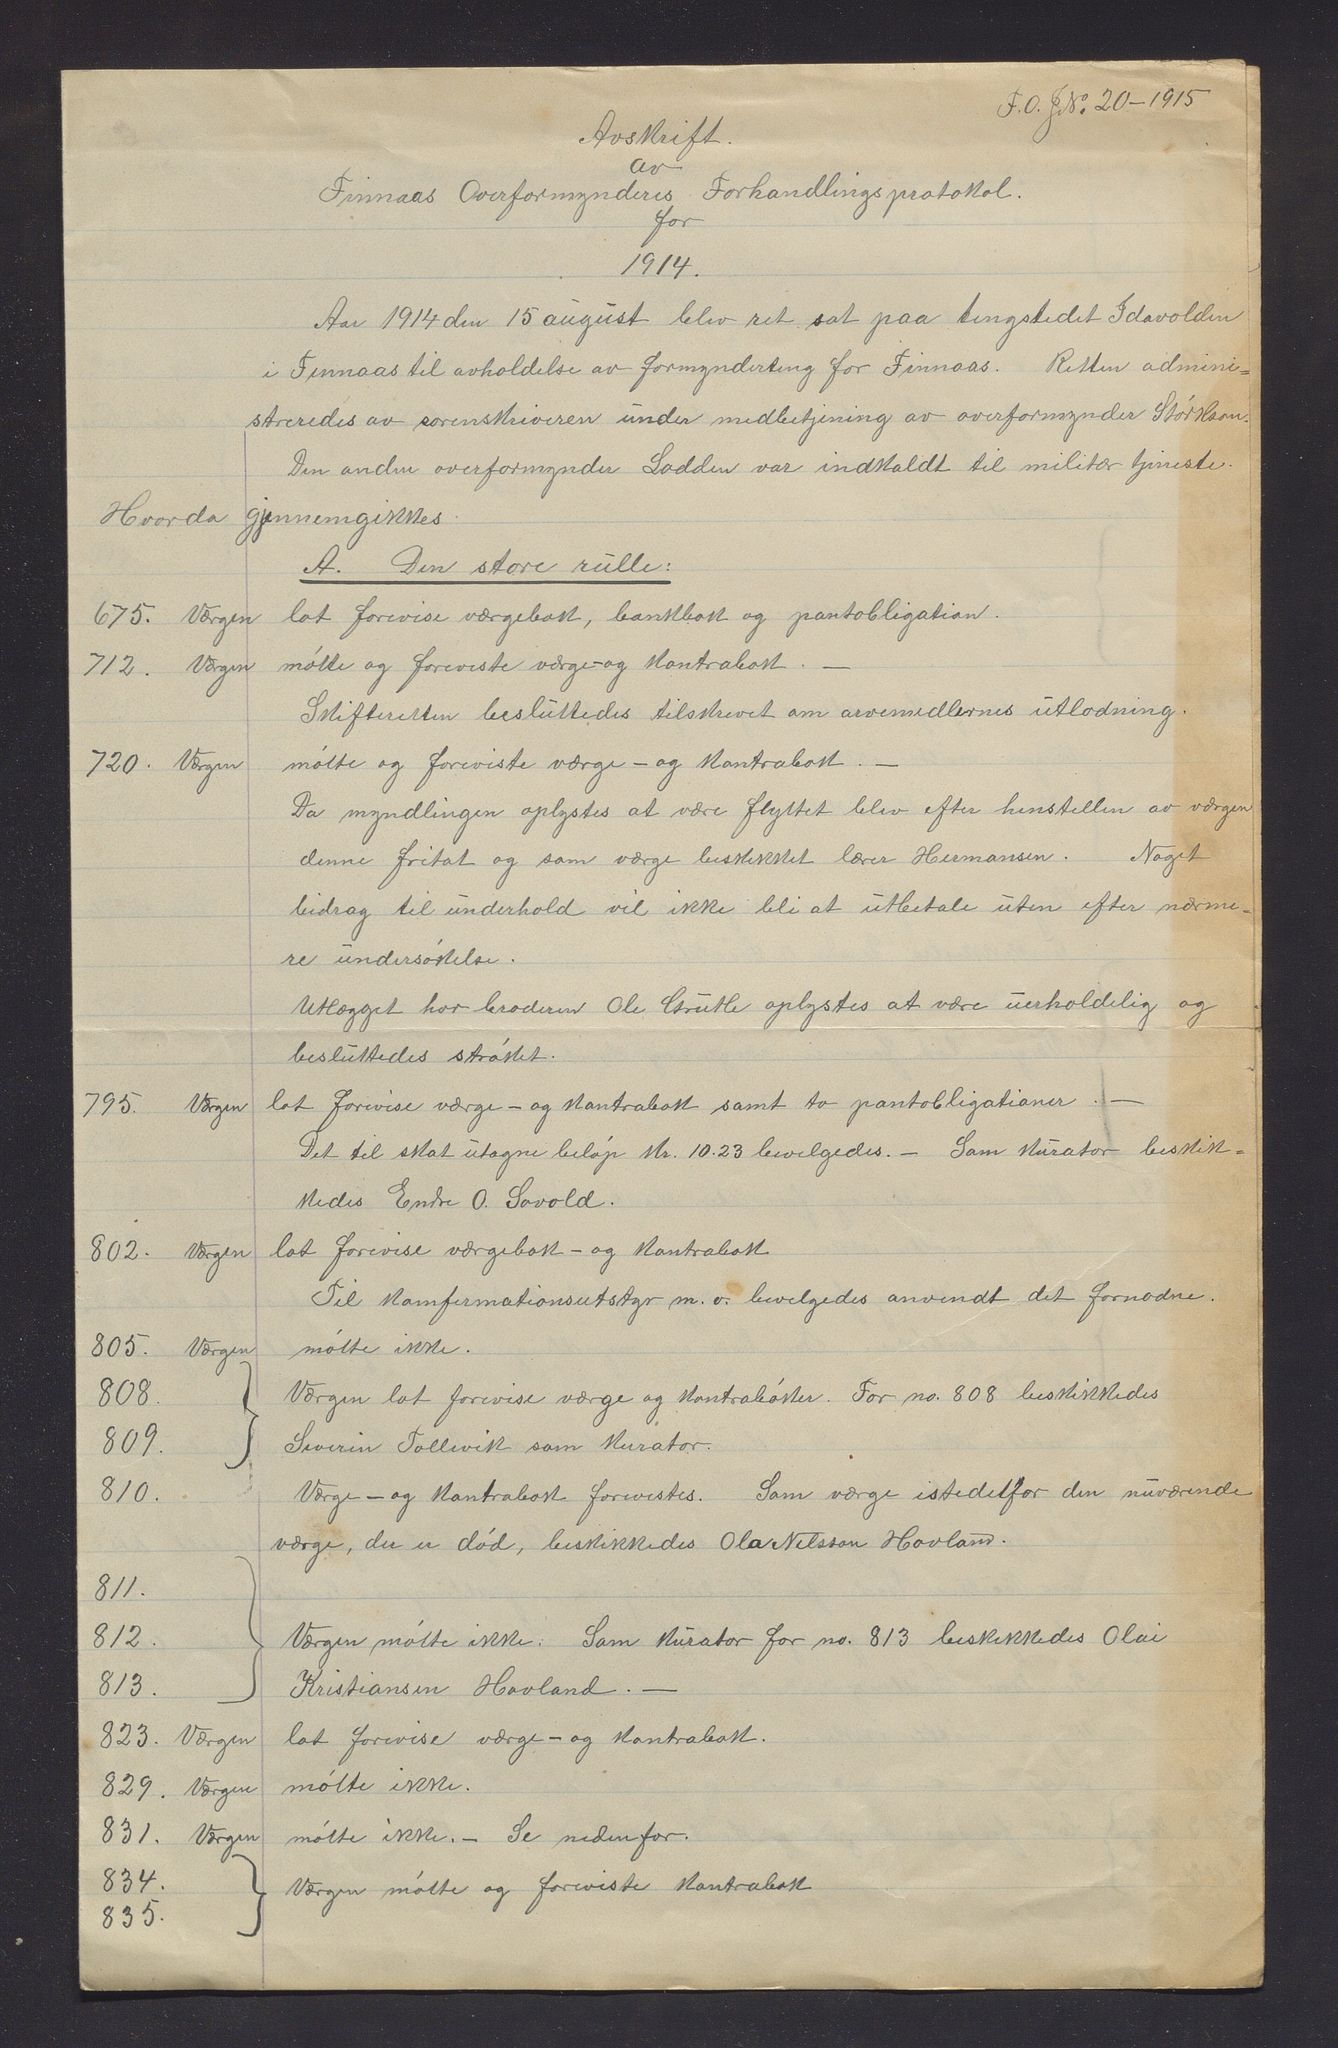 F.O. J.No. 20-1915
Avskrift.
av
Finnaas Overformynderis Forhandlingsprotokol.
for
1914.
Aar 1914 den 15 august blev ret sat paa tingstedet Idavolden
i Finnaas til avholdelse av formynderting for Finnaas. Retten admini=
streredes av sorenskriveren under medbetjening av overformynder Størkson.
Den anden overformynder Lodden var indkaldt til militær tjeneste.
Hvorda gjennemgikkes
A. Den store rulle:
675. Værgen lot forevise værgebok, bankbok og pantobligation.
712. Værgen møtte og foreviste værge- og kontrabok. —
Skifteretten besluttedes tilskrevet om arvemidlernes utlodning.
720. Værgen møtte og foreviste værge- og kontrabok. —
Da myndlingen oplystes at være flyttet blev efter henstillen av værgen
denne fritat og som værge beskikket lærer Hermansen. Noget
bidrag til underhold vil ikke bli at utbetale uten efter nærme=
re undersøkelse.
Utlægget hos broderen Ole Grutle oplystes at være uerholdelig og
besluttedes strøket.
795. Værgen lot forevise værge- og kontrabok samt to pantobligationer. —
Det til skat utagne beløp kr. 10.23 bevilgedes. — Som kurator beskik=
kedes Endre O. Lavold.
802. Værgen lot forevise værgebok- og kontrabok
Til konfirmationsutstyr m.v. bevilgedes anvendt det fornødne.
805. Værgen møtte ikke.
808. Værgen lot forevise værge og kontrabøker. For no. 808 beskikkedes
809. Severin Tollevik som kurator.
810. Værge- og kontrabok forevistes. Som værge istedetfor den nuværende
værge, der er død, beskikkedes Ola Nilsson Hovland.
811.
812. Værgen møtte ikke. Som kurator for no. 813 beskikkedes Olai
813. Kristiansen Hovland. —
823. Værgen lot forevise værge- og kontrabok.
829. Værgen møtte ikke.
831. Værgen møtte ikke. — Se nedenfor.
834. Værgen møtte og foreviste kontrabok
835.